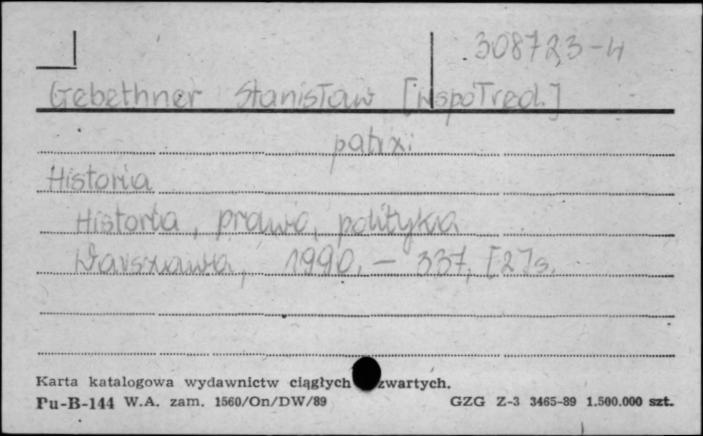 308723-4
Gebethner Stanisław [współred.]
patrz:
Historia
Historia, prawo, polityka
Warszawa, 1990. — 337, [2] s.
Karta katalogowa wydawnictw ciągłych zwartych.
Pu-B-144 W.A. zam. 1560/On/DW/89 GZG Z-3 3465-89 1.500.000 szt.